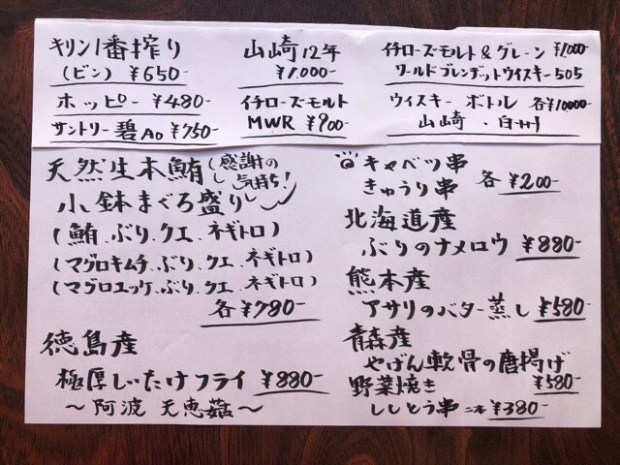 キリン1番搾り
(ビン) ¥650-
ホッピー ¥480-
サントリー 碧Ao ¥750-
山崎12年
¥1.000-
イチローズモルト
MWR ¥900-
イチローズモルト&グレーン ¥1,000
ワールドブレンデットウイスキー505
ウィスキー ボトル 各¥10000-
山崎・白州
天然生本鮪 (感謝の
気持ち!)
小鉢まぐろ盛り
(鮪、ぶり、クエ、ネギトロ)
(マグロキムチ、ぶり、クエ、ネギトロ)
(マグロユッケ、ぶり、クエ、ネギトロ)
各¥780-
徳島産
極厚しいたけフライ ¥880-
～阿波 天恵菇～
キャベツ串
きゅうり串 各 ¥200-
北海道産
ぶりのナメロウ ¥880-
熊本産
アサリのバター蒸し ¥580-
青森産
やげん軟骨の唐揚げ
¥580-
野菜焼き
ししとう串 二本 ¥380-